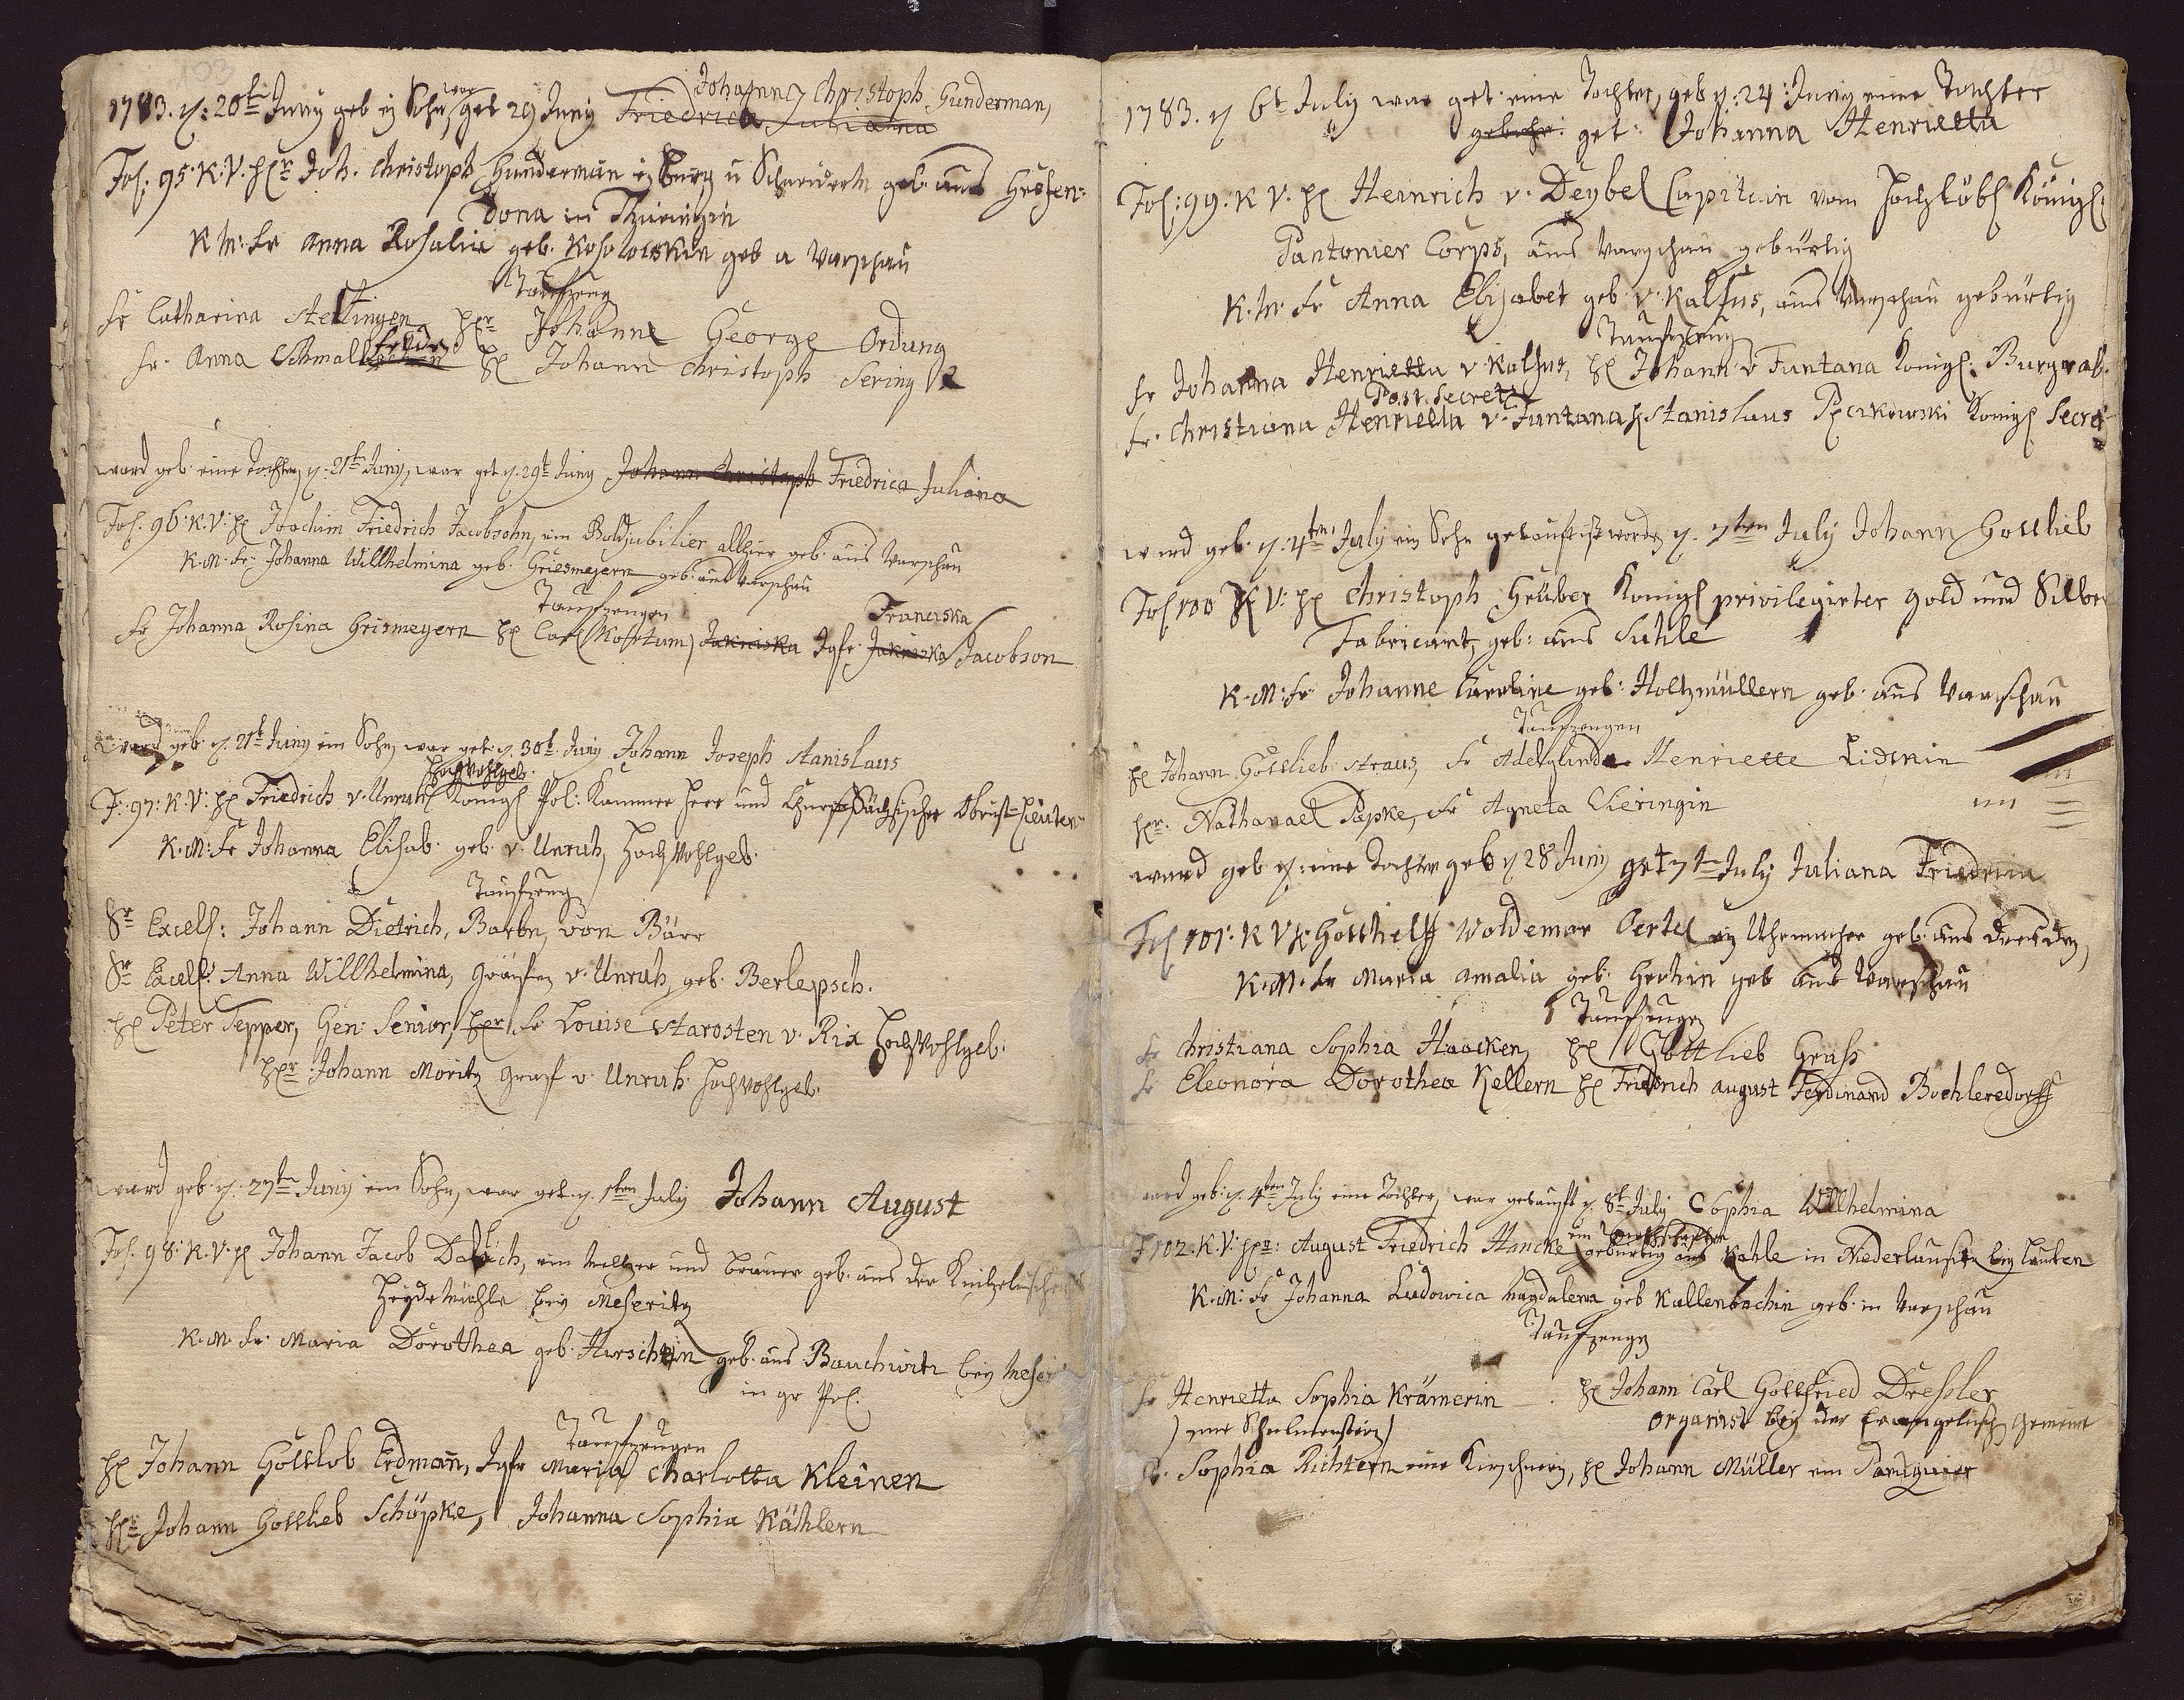 103
Johann Christoph Gunderman,
1783. d: 20t Juny geb ein Sohn, war get 29 Juny Friedrica Juliana
Fol. 95. K. V. Hr Joh. Christoph Gunderman ein Burg u Schneider geb. aus Gräfen-
Dona in Thüringen
K M: Fr Anna Rosalia geb. Kosolowskin geb a Warschau
Taufzeug
Fr Catharina Stellingen Hr Johann George Ordung
Fr. Anna Schmal H Johann Christoph Sering
ward geb. eine Tochter d. 21t Juny, war get d. 29t Juny Johann Christoph Friedrica Juliana
Fol. 96. K. V. H Joachim Friedrich Jacobsohn, ein allhier geb. aus Warschau
K. M. Fr. Johanna Willhelmina geb. Griesmeyern geb. aus Warschau
Taufzeugen
Franciska
Fr Johanna Rosina Grismeyern H Carl Jgfr. Jacobson
ward geb. d. 21t Juny ein Sohn, war get. d. 30t. Juny Johann Joseph Stanislaus
Hochwohlgeb.
F. 97: K. V: H Friedrich v. Unruh Königl Pol: Kammer Herr und Chursächsischer Obrist-Lieuten
K. M: Fr Johanna Elisab. geb. v. Unruh, Hochwohlgeb.
Taufzeug
Sr Excell: Johann Dietrich, Baron, von Bärr
Sr Excell: Anna Willhelmina, Gräfin v. Unruh, geb. Berlepsch.
H Peter Tepper, Gen: Senior, Fr Louise Starosten v. Rix Hochwohlgeb.
Hr Johann Moritz Graf v Unruh. Hochwohlgeb.
ward geb. d. 27ten Juny ein Sohn, war get. d. 1ten July Johann August
Fol. 98: K. V. H Johann Jacob, ein Meltzer und Brauer geb. aus der
Heydemühle bey Meseritz
K. M. Fr. Maria Dorothea geb. Hirschin geb. aus Bauchwitz bey Meser
in gr Pol.
Taufzeugen
H Johann Gottlob Erdmann, Jgfr Maria Charlotta Kleinen
Hr Johann Gottlieb Schöpke, Johanna Sophia Käthlern
1783. d 6t July war get. eine Tochter, geb d: 24: Juny eine Tochter
get: Johanna Henrietta
Fol: 99: K V. H Heinrich v. Deybel Capitain vom Hochlöbl Königl:
Pantonier Corps, aus Warschau gebürtig
K. M. Fr Anna Elisabet geb. v. Kalsus, aus Warschau gebürtig
Taufzeug
Fr Johanna Henrietta v. Kalsus, H Johann v Funtana Königl. Burgrab.
Post Secret
Fr. Christiana Henrietta v. Funtana H Stanislaus Königl Secret
ward geb. d. 4ten July ein Sohn getauft ist worden d. 7ten July Johann Gottlieb
Fol 100 K V: H Christoph Grüber Königl privilegirter Gold und Silber
Fabricant, geb: aus Suhle
K. M: Fr Johanne Caroline geb: Holtzmüllern geb. aus Warschau
Taufzeugen
H Johann Gottlieb Straus, Fr Adelgunda Henriette Lidkin
Hr. Nathanael Papke, Fr Agneta Cheringin
ward geb d: eine Tochter geb d 28 Juny get 7ten July Juliana Friedricia
Fol 101. K V H Gotthelff Woldemar Oertel ein Uhrmacher geb. aus Dresden,
K. M. Fr Maria Amalia geb. Gerhin geb aus Warschau
Taufzeugen
Fr Christiana Sophia Haacken, H Gottlieb Gruss
Fr Eleonora Dorothea Kellern H Friedrich August Ferdinand Boehlersdorff
ward geb. d. 4ten July eine Tochter, war getauft d. 8t July Sophia Willhelmina
F 102. K. V: Hr: August Friedrich Hancke gebürtig aus Kahle in Niederlausitz bey Lucken
K. M: Fr Johanna Ludowica Magdalena geb Kallenbachin geb. in Warschau
Taufzeugen
Fr Henrietta Sophia Krämerin H Johann Carl Gottfried Dressler
eine Schulmeisterin Organist bey der Evangelisch Gemeine
Fr. Sophia Richtern eine Kirschnerin, H Johann Müller ein